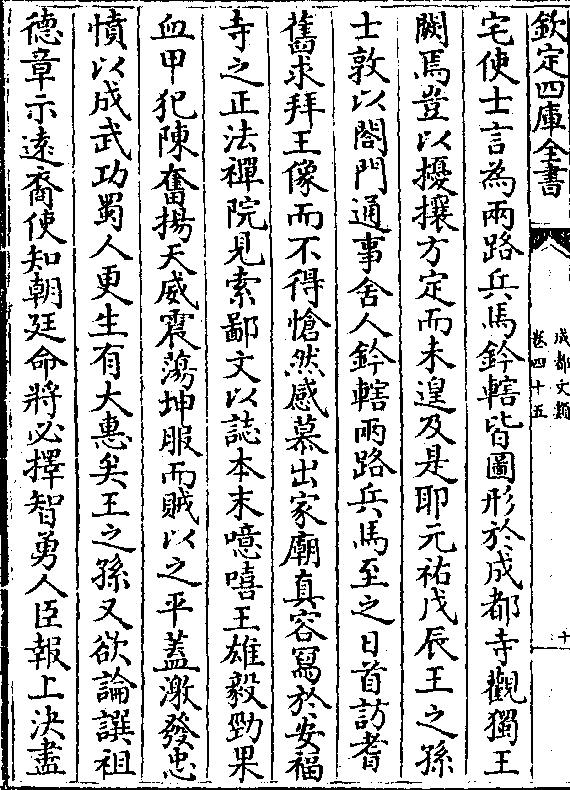 欽定四庫全書
成都文類
卷四十五
十
宅使士言為兩路兵馬鈐轄皆圖形於成都寺觀獨王
闕焉豈以擾攘方定而未遑及是耶元祐戊辰王之孫
士敦以閤門通事舍人鈐轄兩路兵馬至之日首訪耆
舊求拜王像而不得愴然感慕出家廟真容寫於安福
寺之正法禪院見索鄙文以誌本末噫嘻王雄毅勁果
血甲犯陳奮揚天威震蕩坤服而賊以之平蓋激發忠
憤以成武功蜀人更生有大惠矣王之孫又欲論譔祖
德章示遠裔使知朝廷命將必擇智勇人臣報上決盡